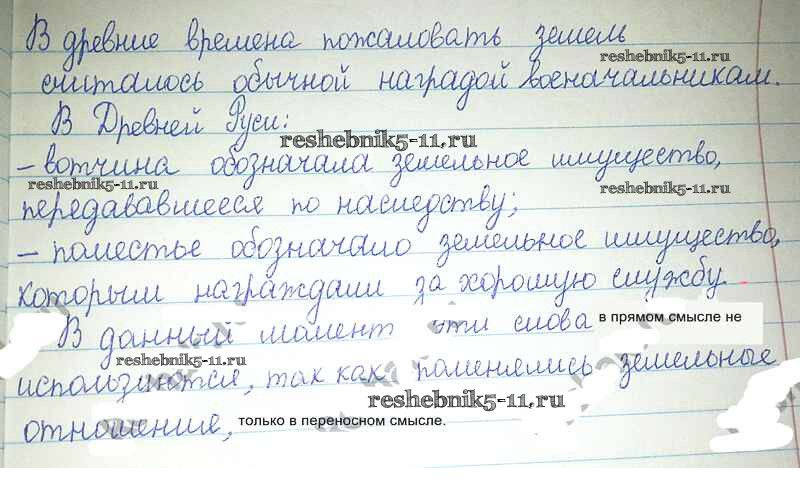 В древние времена пожаловать земель
reshebnik5-11.ru
считалось обычной наградой военачальникам.
В Древней Руси:
reshebnik5-11.ru
– вотчина обозначала земельное имущество,
reshebnik5-11.ru
reshebnik5-11.ru
передававшееся по наследству;
– поместье обозначало земельное имущество,
которым награждали за хорошую службу.
В данный момент эти слова в прямом смысле не
reshebnik5-11.ru
используются, так как поменялись земельные
reshebnik5-11.ru
отношение, только в переносном смысле.